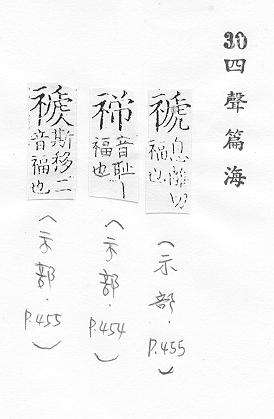 30四聲篇海
禠息離切福也
(示部．P.455)
禘音耻福也
(示部．P.454)
斯移二音福也
(示部．P.455)